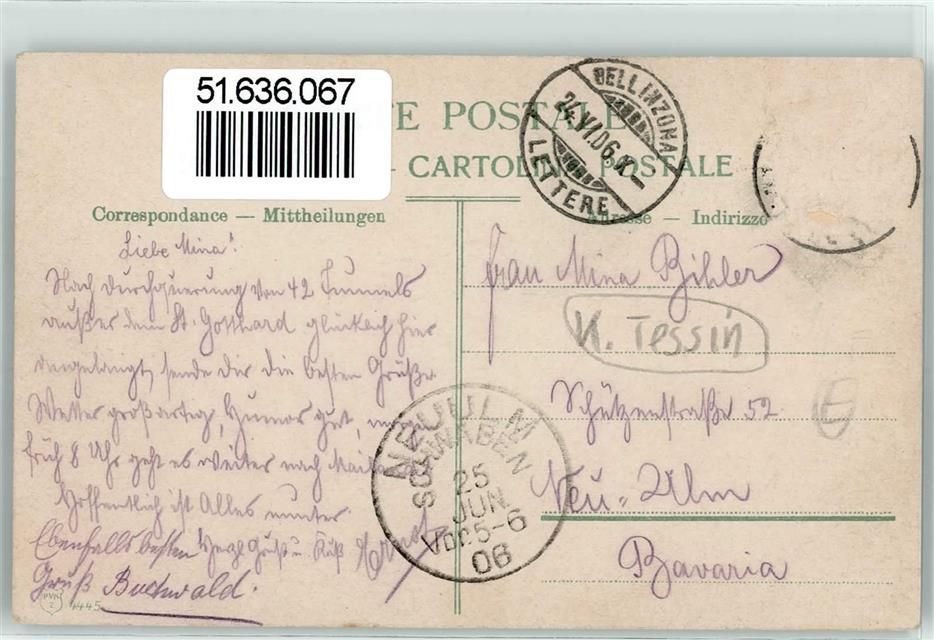 51.636.067
TE POSTALE
CARTOLINA POSTALE
BELLINZONA
24.VI.06
LETTERE
Correspondance — Mittheilungen
Adresse — Indirizzo
Liebe Mina!
Nach Durchquerung von 42 Tunnels
außer dem St. Gotthard glücklich hier
angelangt, sende Dir die besten Grüße.
Wetter großartig, Humor gut, morgen
früh 8 Uhr geht es weiter nach Mail
Hoffentlich ist Alles munter.
Herzl. Gruß u. Kuß Ernst
Ebenfalls besten
Gruß Buchwald.
Frau Mina Bihler
K. Tessin
Schützenstraße 52
E
Neu-Ulm
Bavaria
NEU ULM
SCHWABEN
25
JUN
Vor. 5-6
06
PVK
Z
4445